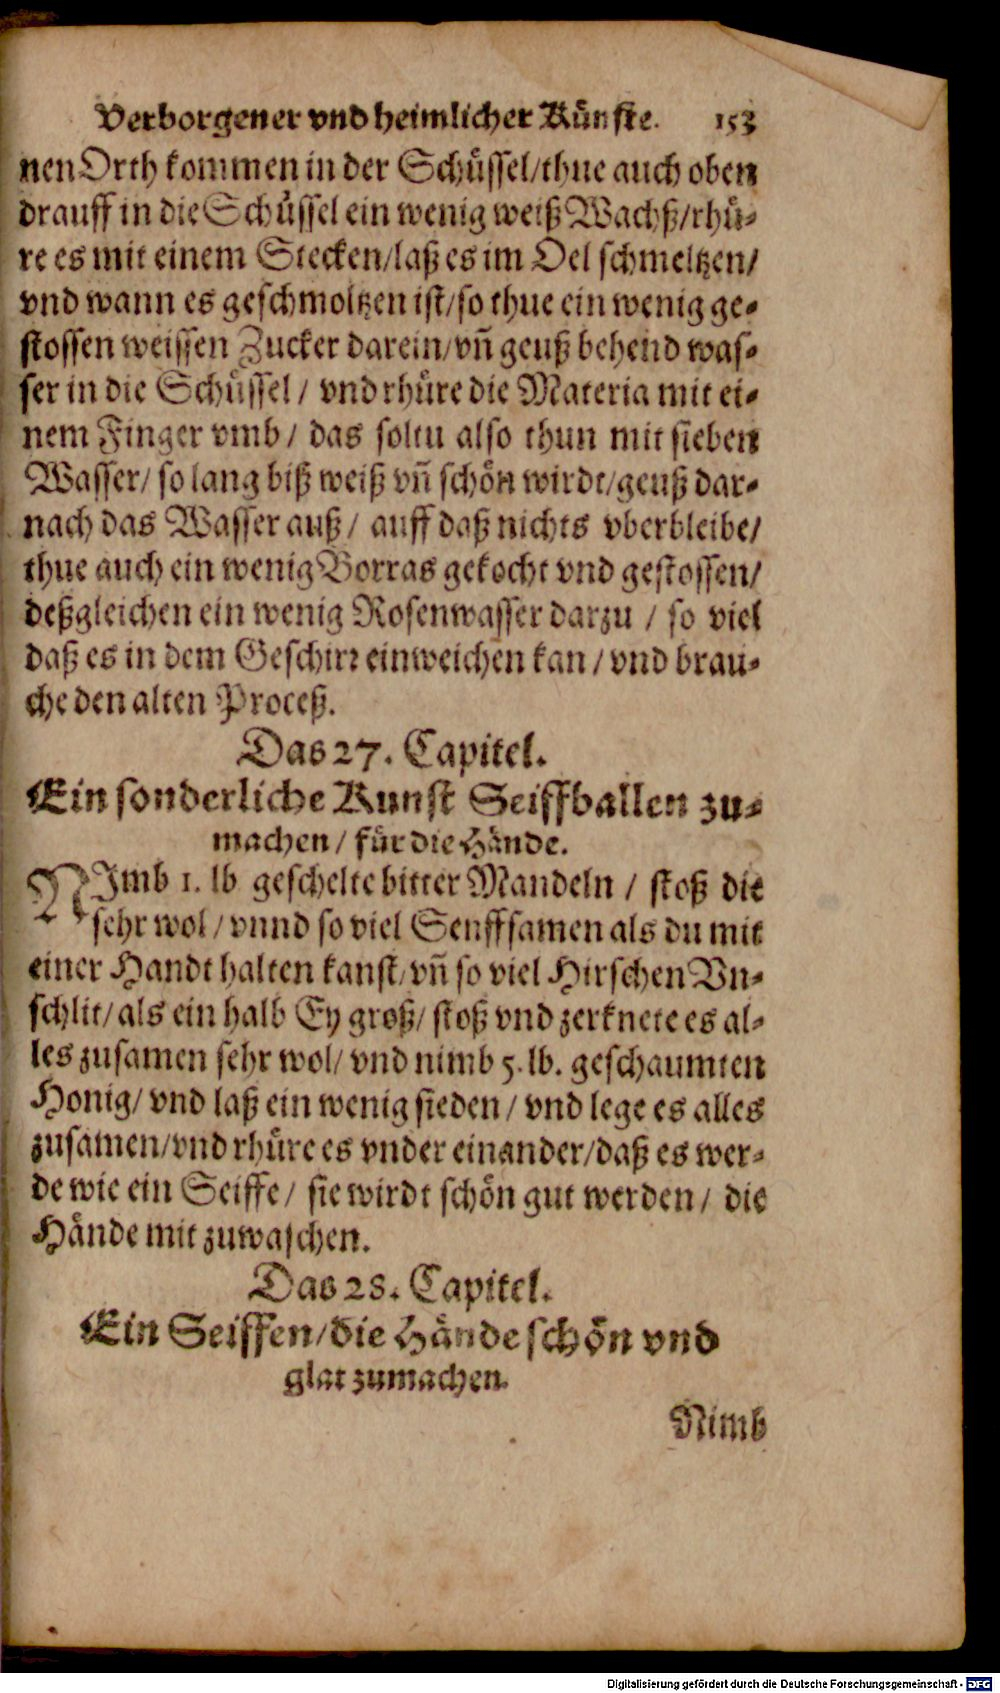 Verborgener vnd heimlicher Künste. 153
nen Orth kommen in der Schüssel/thue auch oben
drauff in die Schüssel ein wenig weiß Wachß/rhü-
re es mit einem Stecken/laß es im Oel schmeltzen/
vnd wann es geschmoltzen ist/so thue ein wenig ge-
stossen weissen Zucker darein/vñ geuß behend was-
ser in die Schüssel / vnd rhüre die Materia mit ei-
nem Finger vmb / das soltu also thun mit sieben
Wasser/ so lang biß weiß vñ schön wirdt/geuß dar-
nach das Wasser auß / auff daß nichts vberbleibe/
thue auch ein wenig Borras gekocht vnd gestossen/
deßgleichen ein wenig Rosenwasser darzu / so viel
daß es in dem Geschirr einweichen kan / vnd brau-
che den alten Proceß.
Das 27. Capitel.
Ein sonderliche Kunst Seiffballen zu-
machen / für die Hände.
NImb 1. lb geschelte bitter Mandeln / stoß die
sehr wol / vnnd so viel Senffsamen als du mit
einer Handt halten kanst/vñ so viel Hirschen Vn-
schlit/ als ein halb Ey groß/ stoß vnd zerknete es al-
les zusamen sehr wol/ vnd nimb 5. lb. geschaumten
Honig/ vnd laß ein wenig sieden / vnd lege es alles
zusamen/vnd rhüre es vnder einander/daß es wer-
de wie ein Seiffe / sie wirdt schön gut werden / die
Hände mit zuwaschen.
Das 28. Capitel.
Ein Seiffen/die Hände schön vnd
glat zumachen.
Nimb
Digitalisierung gefördert durch die Deutsche Forschungsgemeinschaft - DFG